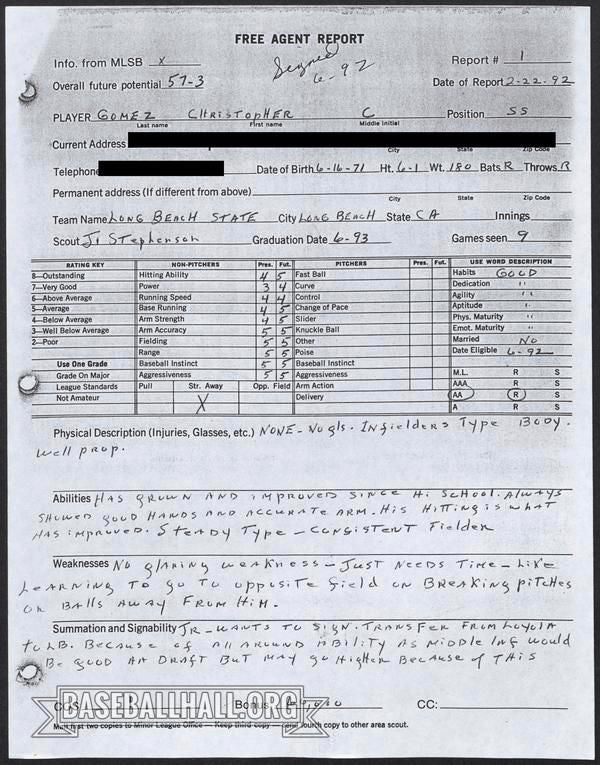 FREE AGENT REPORT
Info. from MLSB X Report # 1
Signed 6-92
Overall future potential 57-3 Date of Report 2-22-92
PLAYER GOMEZ CHRISTOPHER C Position SS
Last name First name Middle Initial
Current Address
City State Zip Code
Telephone Date of Birth 6-16-71 Ht. 6-1 Wt. 180 Bats R Throws R
Permanent address (If different from above)
City State Zip Code
Team Name LONG BEACH STATE City LONG BEACH State CA Innings
Scout J. Stephenson Graduation Date 6-93 Games seen 9
RATING KEY NON-PITCHERS Pres. Fut. PITCHERS Pres. Fut. USE WORD DESCRIPTION
8—Outstanding Hitting Ability 4 5 Fast Ball Habits GOOD
7—Very Good Power 3 4 Curve Dedication "
6—Above Average Running Speed 4 4 Control Agility "
5—Average Base Running 4 5 Change of Pace Aptitude "
4—Below Average Arm Strength 4 5 Slider Phys. Maturity "
3—Well Below Average Arm Accuracy 5 5 Knuckle Ball Emot. Maturity "
2—Poor Fielding 5 5 Other Married NO
Range 5 5 Poise Date Eligible 6-92
Use One Grade Baseball Instinct 5 5 Baseball Instinct M.L. R S
Grade On Major Aggressiveness 5 5 Aggressiveness AAA R S
League Standards Pull Str. Away Opp. Field Arm Action AA R S
Not Amateur X Delivery A R S
Physical Description (Injuries, Glasses, etc.) NONE - No gls. Infielders Type Body.
Well prop.
Abilities HAS GROWN AND IMPROVED SINCE Hi SCHOOL. ALWAYS
SHOWED GOOD HANDS AND ACCURATE ARM. HIS HITTING is WHAT
HAS iMPROVED. STEADY TYPE - CONSISTENT Fielder
Weaknesses NO glaring weakness - JUST NEEDS TIME - Like
LEARNING TO go TO opposite field on BREAKING piTCHES
OR BALLS AWAY FROM HIM.
Summation and Signability JR - WANTS TO SIGN. TRANSFER FROM LOYOLA
TO LB. BECAUSE of All AROUND Ability AS MIDDLE INF would
Be good AA DRAFT BUT MAY go Higher BECAUSE of THIS
Bonus CC:
BASEBALLHALL.ORG
Mail first two copies to Minor League Office — Keep third copy — send fourth copy to other area scout.